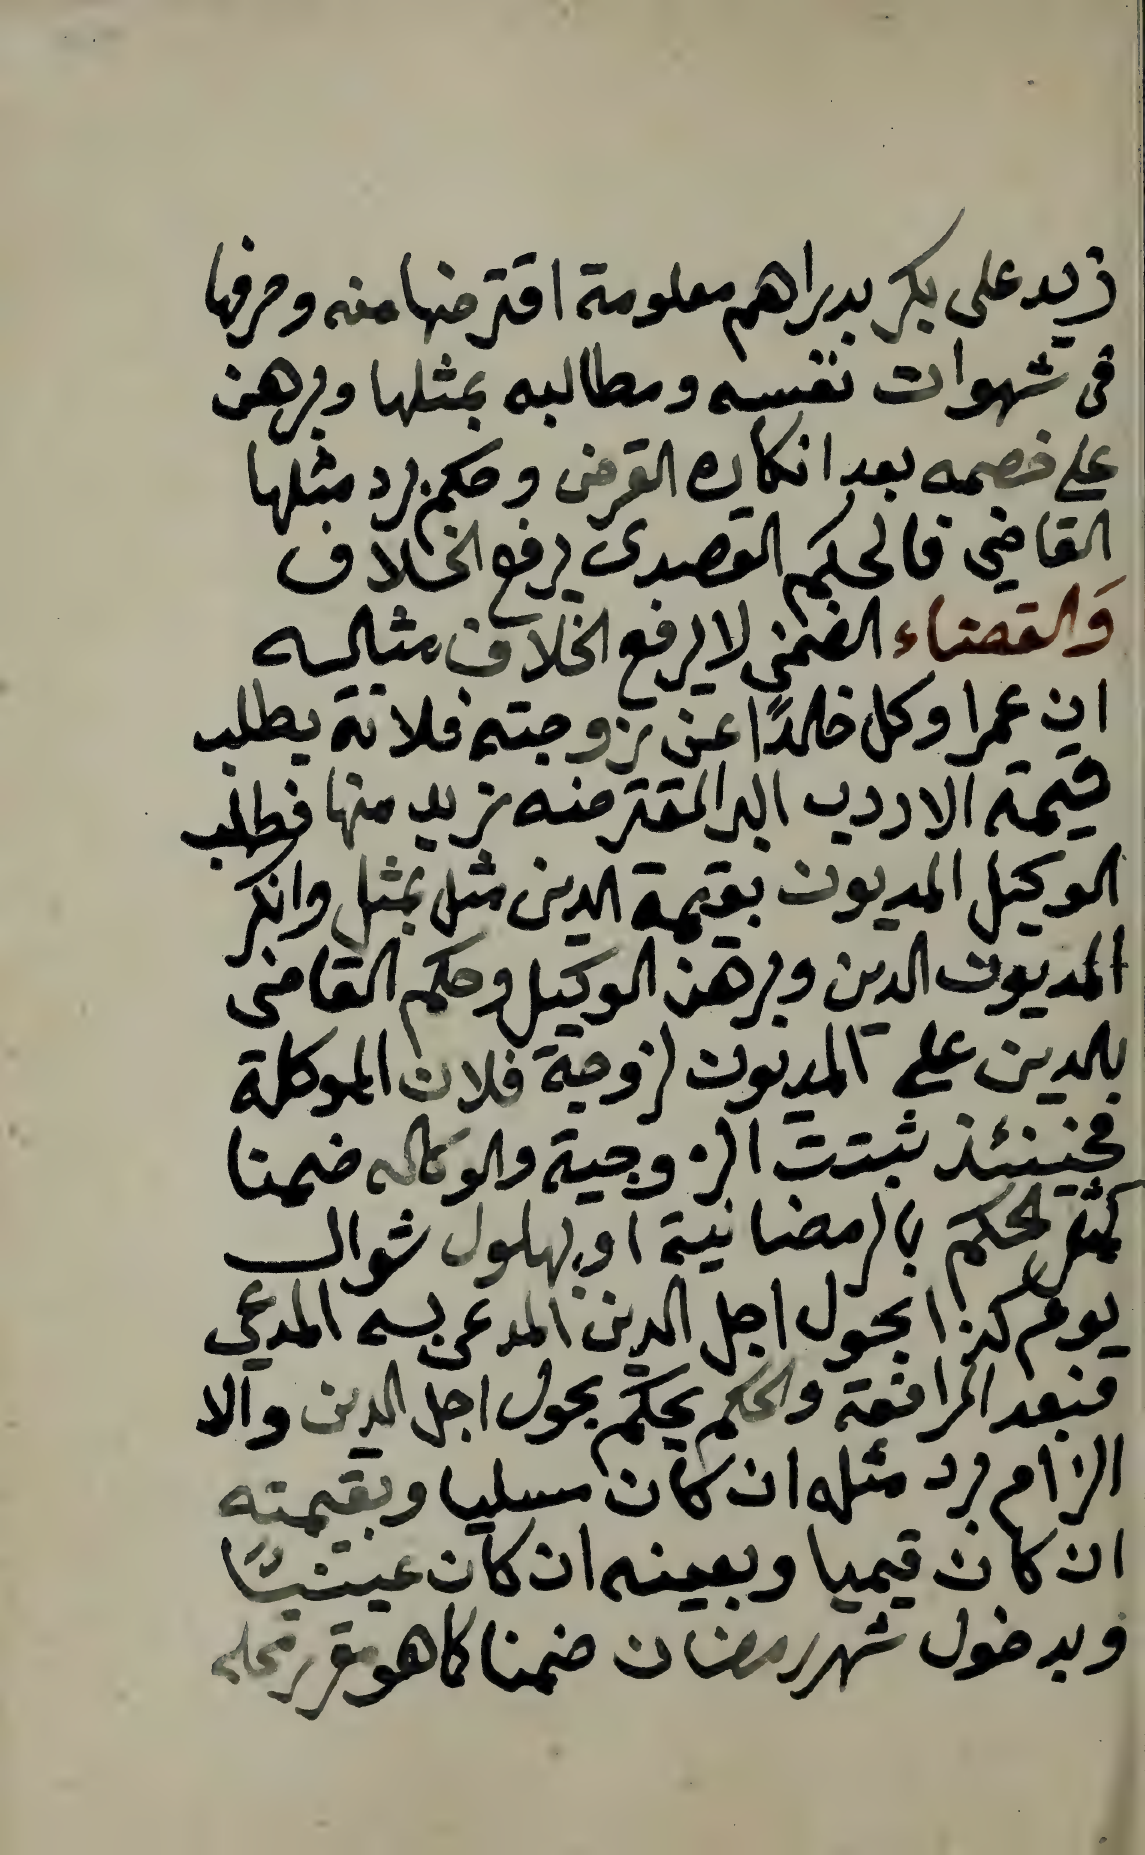 زيد على بكر بدراهم معلومة اقترضها منه وصرفها
فى شهوات نفسه ومطالبه بمثلها وبرهن
على خصمه بعد انكاره القرض وحكم برد مثلها
القاضي فالحكم القصدى يرفع الخلاف
والقضاء الضمني لا يرفع الخلاف مثاله
ان عمرا وكل خالدًا عن زوجته فلانة يطلب
قيمة الاردب البر المقترضه زيد منها فطالب
الوكيل المديون بقيمة الدين مثل بمثل وانكر
المديون الدين وبرهن الوكيل وحكم القاضى
بالدين على المديون لزوجة فلان الموكلة
فحينئذ ثبتت الزوجية والوكاله ضمنا
الحكم بالرمضانية او بهلول شوال
يوم كذا بحول اجل الدين المدعى به المدعي
فبعد المرافعة والحكم يحكم بحول اجل الدين والا
الزام برد مثله ان كان مسليا وبقيمته
ان كان قيميا وبعينه ان كان عينيًا
وبدخول شهر رمضان ضمنا كما هو مقرر محله